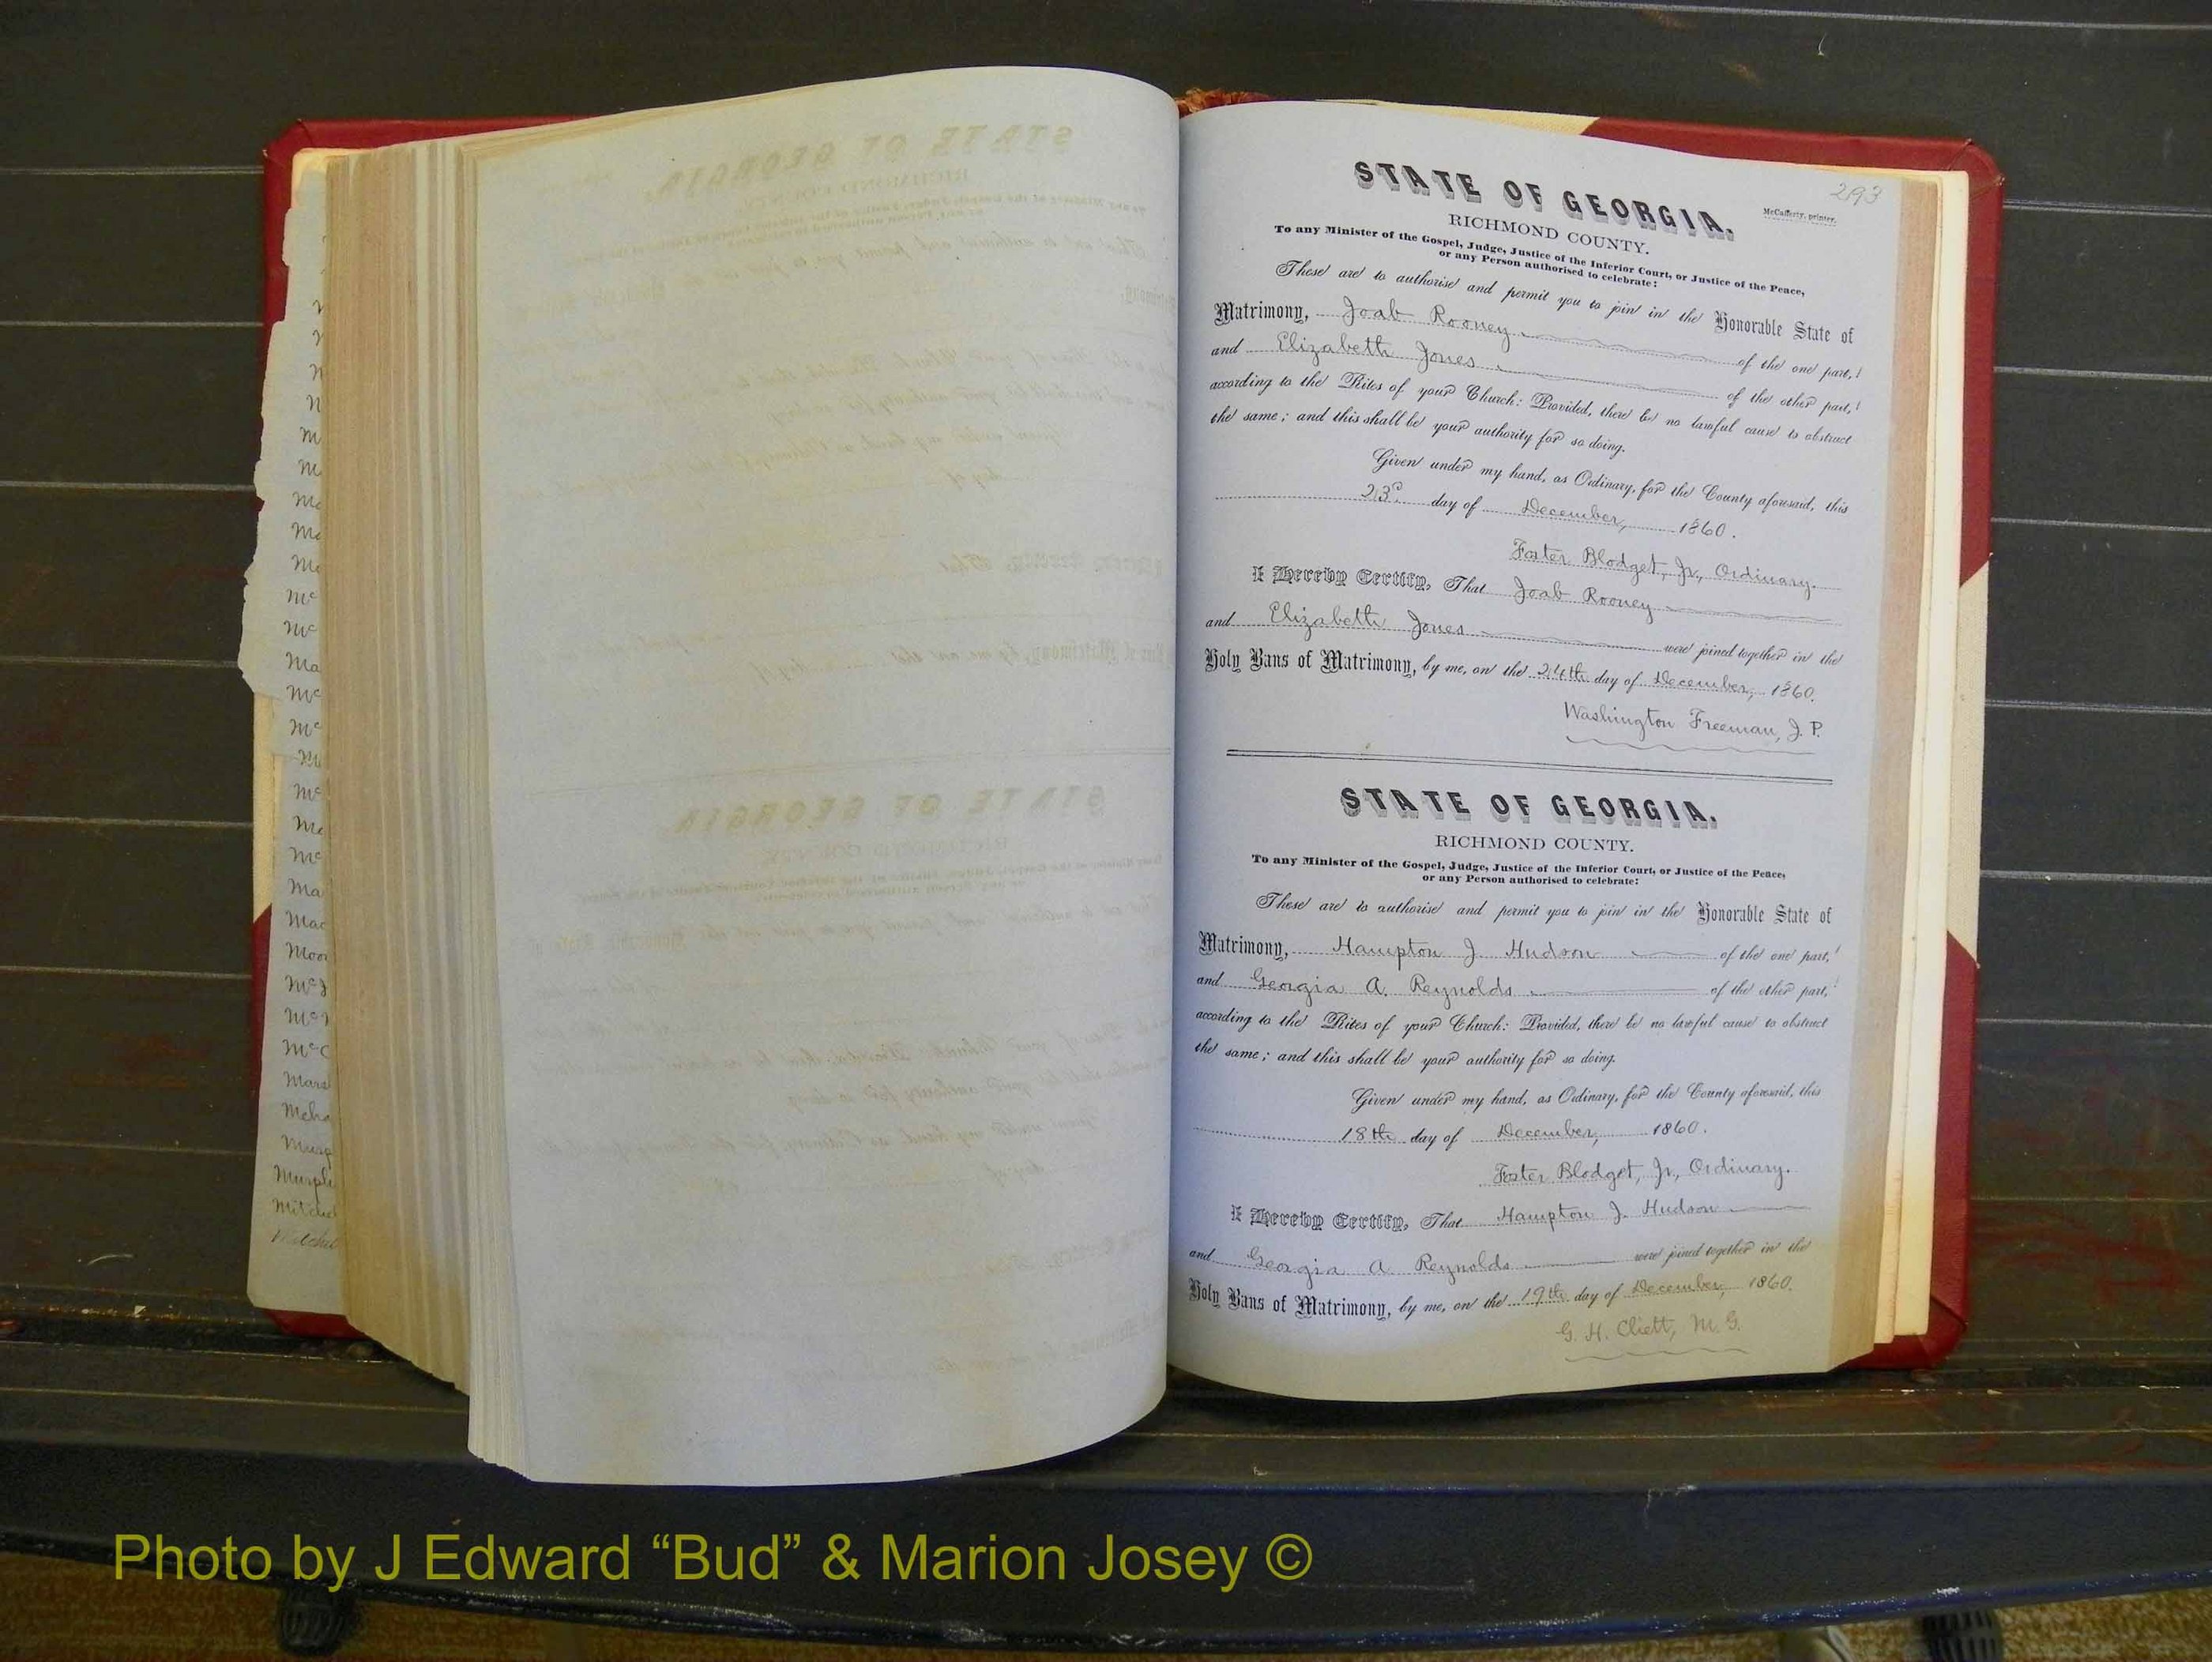 293
STATE OF GEORGIA.
McCafferty, printer.
RICHMOND COUNTY.
To any Minister of the Gospel, Judge, Justice of the Inferior Court, or Justice of the Peace,
or any Person authorised to celebrate:
These are to authorise and permit you to join in the Honorable State of
Matrimony, Joab Rooney of the one part,
and Elizabeth Jones of the other part,
according to the Rites of your Church: Provided, there be no lawful cause to obstruct
the same; and this shall be your authority for so doing.
Given under my hand, as Ordinary, for the County aforesaid, this
23d day of December, 1860.
Foster Blodget, Jr., Ordinary.
I Hereby Certify, That Joab Rooney
and Elizabeth Jones were joined together in the
Holy Bans of Matrimony, by me, on the 24th day of December, 1860.
Washington Freeman, J. P.
STATE OF GEORGIA.
RICHMOND COUNTY.
To any Minister of the Gospel, Judge, Justice of the Inferior Court, or Justice of the Peace,
or any Person authorised to celebrate:
These are to authorise and permit you to join in the Honorable State of
Matrimony, Hampton J. Hudson of the one part,
and Georgia A. Reynolds of the other part,
according to the Rites of your Church: Provided, there be no lawful cause to obstruct
the same; and this shall be your authority for so doing.
Given under my hand, as Ordinary, for the County aforesaid, this
18th day of December, 1860.
Foster Blodget, Jr., Ordinary.
I Hereby Certify, That Hampton J. Hudson
and Georgia A. Reynolds were joined together in the
Holy Bans of Matrimony, by me, on the 19th day of December, 1860.
G. H. Cliett, M. G.
Photo by J Edward “Bud” & Marion Josey ©